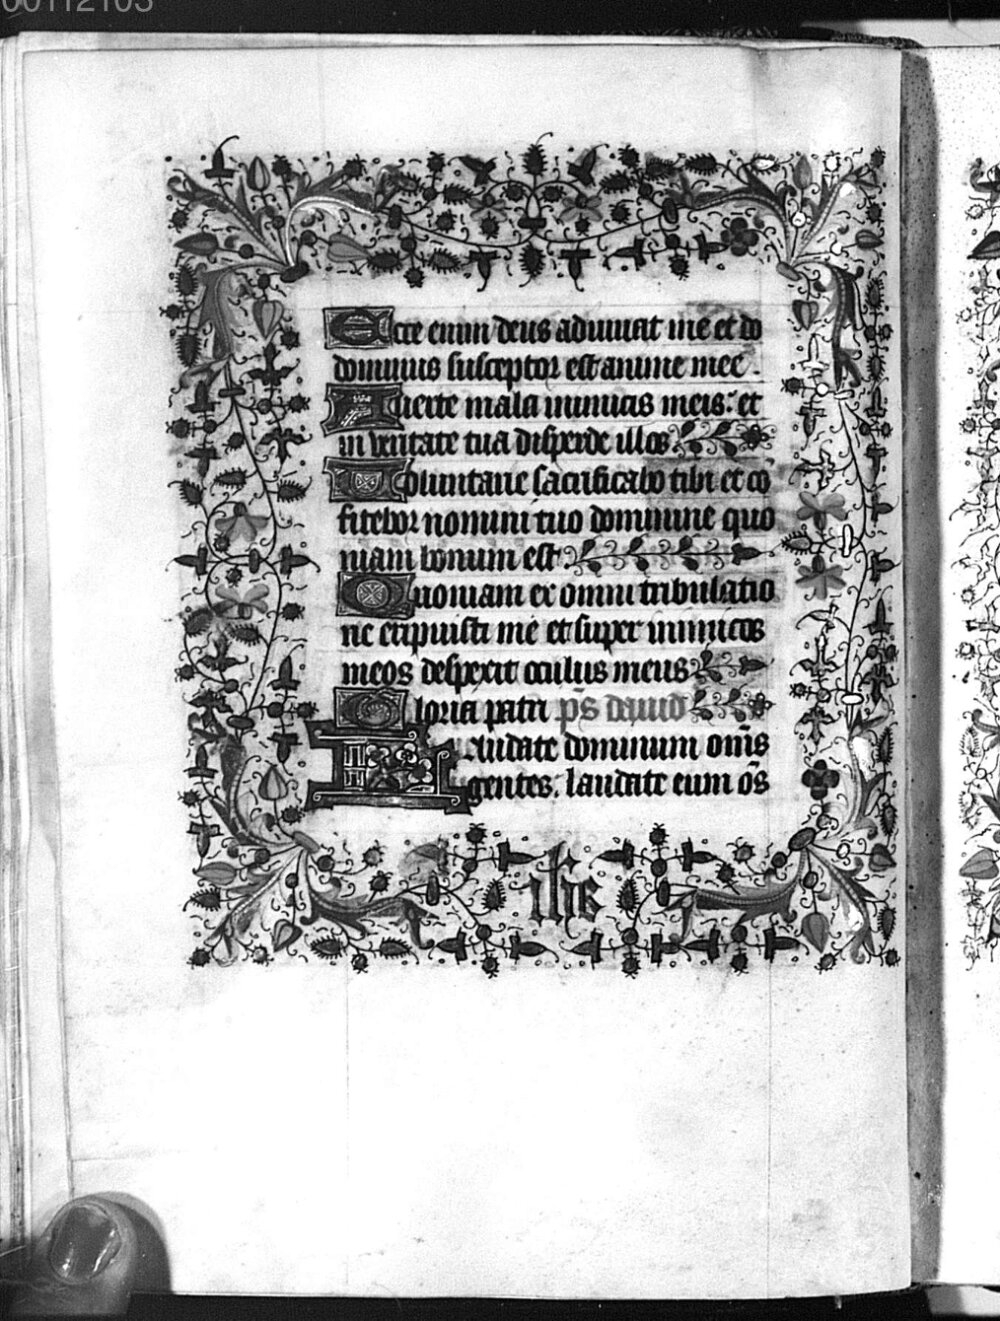 00112103
Ecce enim deus adiuuat me et do
dominus susceptor est anime mee.
Auerte mala inimicis meis: et
in ueritate tua disperde illos
Uoluntarie sacrificabo tibi et co
fitebor nomini tuo domine quo
niam bonum est
Quoniam ex omni tribulatio
ne eripuisti me et super inimicos
meos despexit oculus meus
Gloria patri p̄s dauid
Laudate dominum om̄s
gentes. laudate eum o̅s
ihc